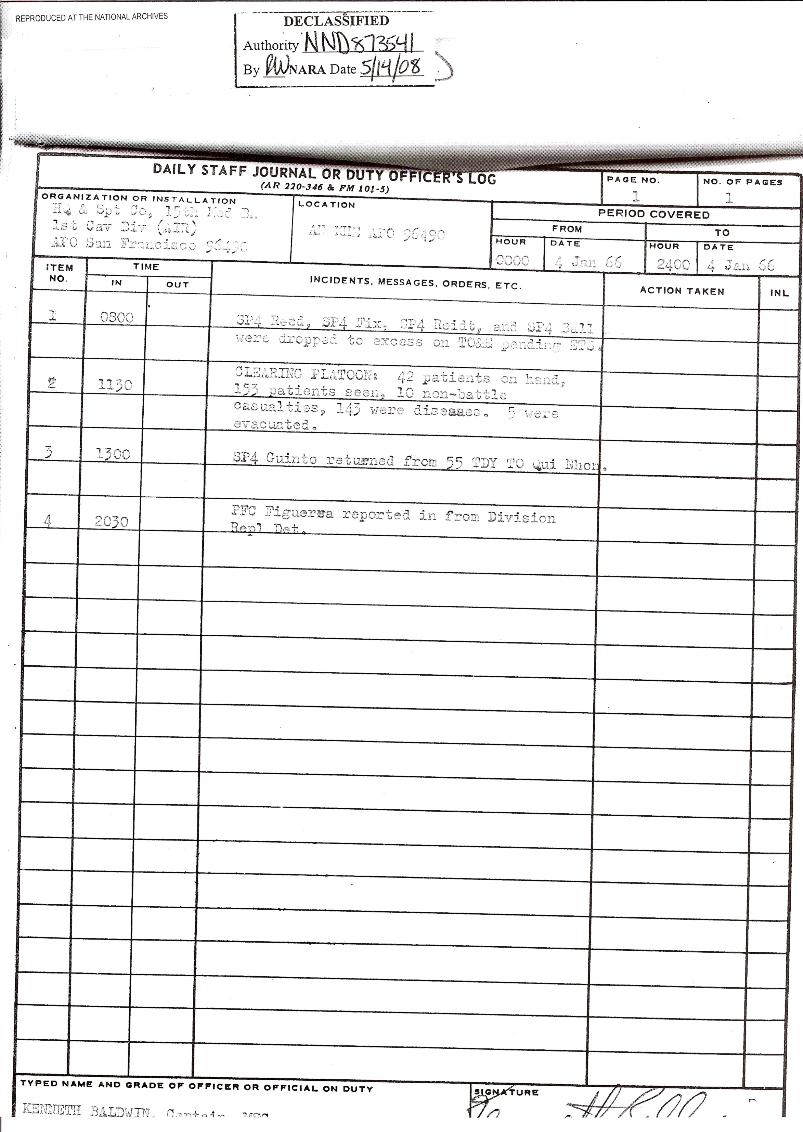 REPRODUCED AT THE NATIONAL ARCHIVES
DECLASSIFIED
Authority NND873541
By NARA Date 5/14/08
DAILY STAFF JOURNAL OR DUTY OFFICER'S LOG
(AR 220-346 & FM 101-5)
PAGE NO.
1
NO. OF PAGES
1
ORGANIZATION OR INSTALLATION
Hq & Spt Co, 15th Med Bn.
1st Cav Div (AIR)
APO San Francisco 96490
LOCATION
AN KHE APO 96490
PERIOD COVERED
FROM
TO
HOUR
0000
DATE
4 Jan 66
HOUR
2400
DATE
4 Jan 66
ITEM NO.
TIME
IN
OUT
INCIDENTS, MESSAGES, ORDERS, ETC.
ACTION TAKEN
INL
1 0800 SP4 Reed, SP4 Fix, SP4 Reidt, and SP4 Ball
were dropped to excess on TO&E pending ETS.
2 1130 CLEARING PLATOON: 42 patients on hand,
153 patients seen, 10 non-battle
casualties, 143 were diseases. 5 were
evacuated.
3 1300 SP4 Guinto returned from 55 TDY TO Qui Nhon.
4 2030 PFC Figueroa reported in from Division
Repl Det.
TYPED NAME AND GRADE OF OFFICER OR OFFICIAL ON DUTY
KENNETH BALDWIN, Captain, MSC
SIGNATURE